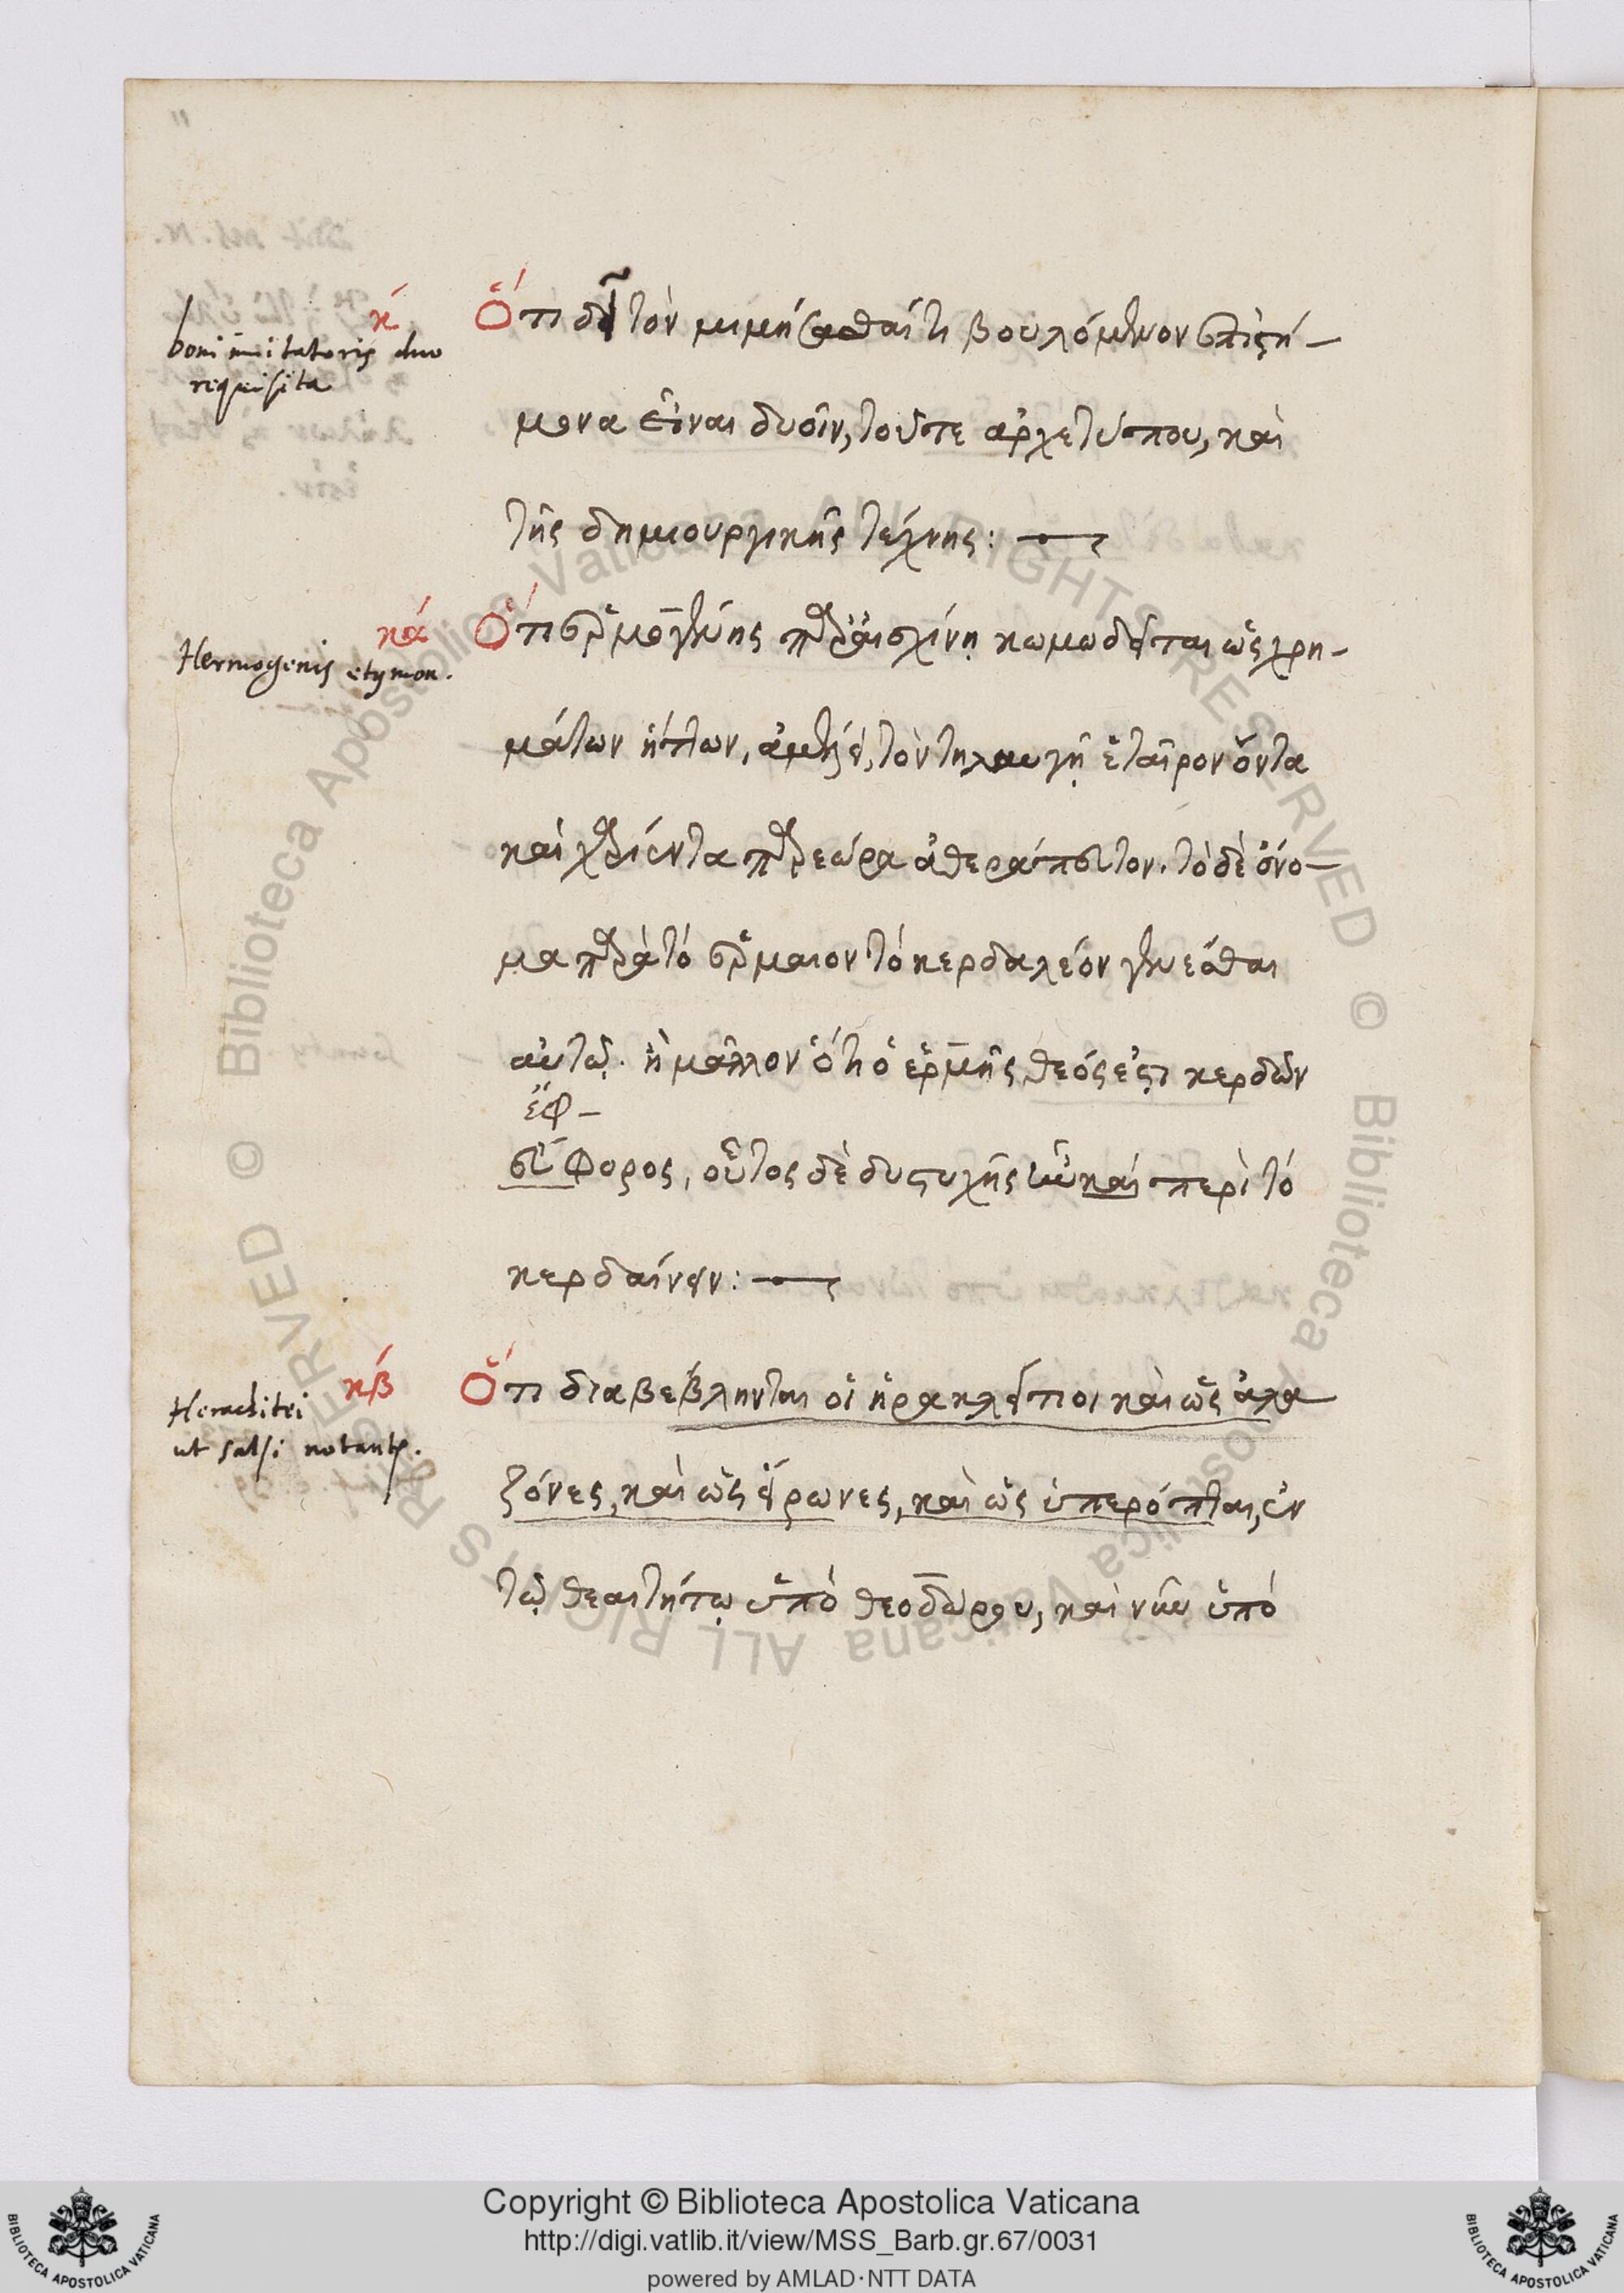 κ́
boni imitatoris duo
requisita
Ὅτι δεῖ τὸν μιμήσασθαί τι βουλόμενον ἐπιστή-
μονα εἶναι δυοῖν, τοῦτε ἀρχετύπου, καὶ
τῆς δημιουργικῆς τέχνης:
κά
Hermogenis etymon.
Ὅτι ἑρμογένης παρ' αἰσχίνῃ κωμωδεῖται ὡς χρη-
μάτων ἥττων, ἀμελεῖ, τὸν τηλαυγῆ ἑταῖρον ὄντα
καὶ χαρίεντα παρεώρα ἀθεράπευτον. τὸ δὲ ὄνο-
μα παρὰ τὸ ἕρμαιον τὸ κερδαλέον γενέσθαι
αὐτῷ. ἢ μᾶλλον ὅτι ὁ ἑρμῆς θεός ἐστι κερδῶν
ἔφ-
εὔφορος, οὗτος δὲ δυστυχὴς ἦν καὶ περὶ τὸ
κερδαίνειν:
κβ́
Heraclitei
ut falsi notantur.
Ὅτι διαβέβληνται οἱ ἡρακλείτιοι καὶ ὡς ἀλα
ζόνες, καὶ ὡς εἴρωνες, καὶ ὡς ὑπερόπται, ἐν
τῷ θεαιτήτῳ ὑπὸ θεοδώρου, καὶ νῦν ὑπὸ
Copyright © Biblioteca Apostolica Vaticana
http://digi.vatlib.it/view/MSS_Barb.gr.67/0031
powered by AMLAD·NTT DATA